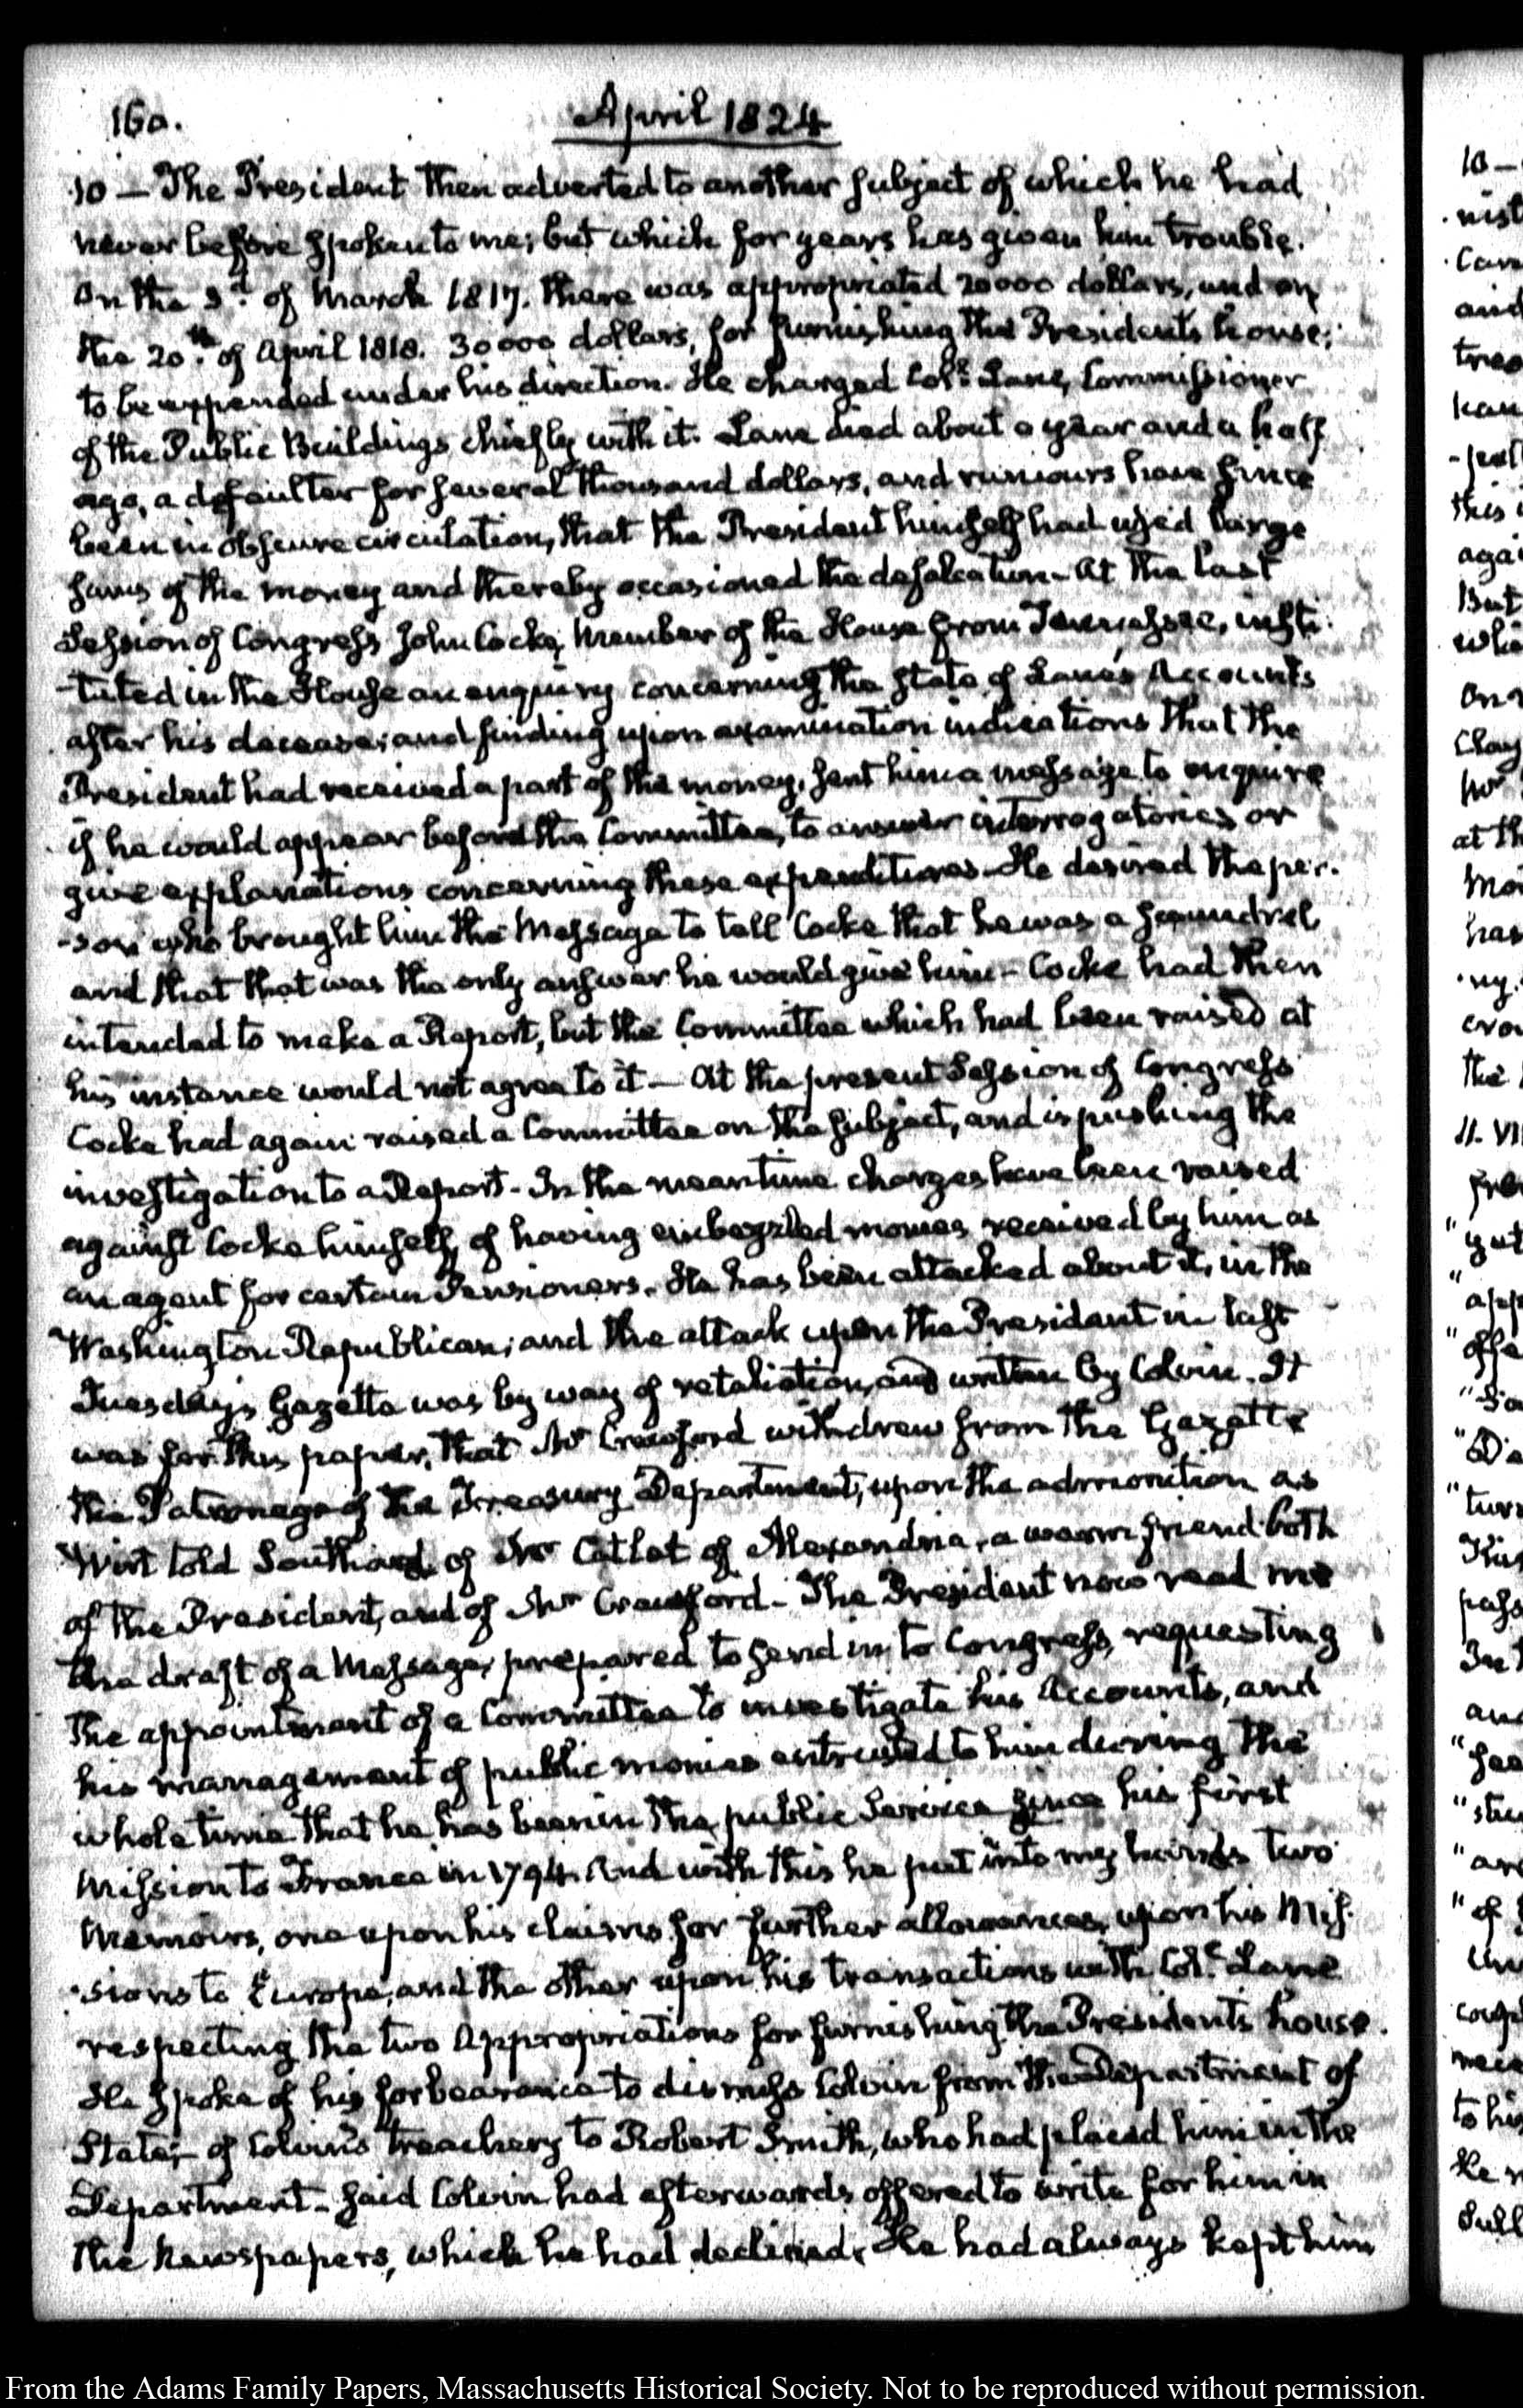 160.
April 1824
10 — The President then adverted to another subject of which he had
never before spoken to me; but which for years has given him trouble.
On the 3d. of March 1817. there was appropriated 20000 dollars, and on
the 20th. of April 1818. 30000 dollars, for furnishing the Presidents house;
to be expended under his direction. He charged Coll. Lane, Commissioner
of the Public Buildings chiefly with it. Lane died about a year and a half
ago, a defaulter for several thousand dollars, and rumours have since
been in obscure circulation, that the President himself had used large
sums of the money and thereby occasioned the defalcation - At the last
Session of Congress John Cocke, Member of the House from Tennessee, insti-
-tuted in the House an enquiry concerning the state of Lane's Accounts
after his decease; and finding upon examination indications that the
President had received a part of the money, sent him a message to enquire
if he would appear before the Committee, to answer interrogatories or
give explanations concerning these expenditures - He desired the per-
-son who brought him the Message to tell Cocke that he was a scoundrel
and that that was the only answer he would give him - Cocke had then
intended to make a Report, but the Committee which had been raised at
his instance would not agree to it — At the present Session of Congress
Cocke had again raised a Committee on the subject, and is pushing the
investigation to a Report - In the meantime charges have been raised
against Cocke himself, of having embezzled monies received by him as
an agent for certain Pensioners. He has been attacked about it, in the
Washington Republican; and the attack upon the President in last
Tuesday's Gazette was by way of retaliation, and written by Colvin. It
was for this paper, that Mr Crawford withdrew from the Gazette
the Patronage of the Treasury Department, upon the admonition as
Wirt told Southard of Mr Catlet of Alexandria, a warm friend both
of the President, and of Mr Crawford - The President now read me
the draft of a Message, prepared to send in to Congress, requesting
the appointment of a Committee to investigate his Accounts, and
his management of public monies entrusted to him during the
whole time that he has been in the public service since his first
Mission to France in 1794. And with this he put into my hands two
Memoirs, one upon his claims for further allowances, upon his Mis-
-sions to Europe, and the other upon his transactions with Coll. Lane
respecting the two Appropriations for furnishing the Presidents house.
He spoke of his forbearance to dismiss Colvin from the Department of
State; - of Colvin's treachery to Robert Smith, who had placed him in the
Department - said Colvin had afterwards offered to write for him in
the Newspapers, which he had declined. He had always kept him
From the Adams Family Papers, Massachusetts Historical Society. Not to be reproduced without permission.